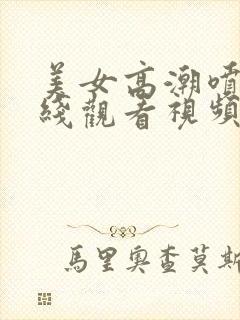 美女高潮噴
綫觀看視頻
馬里奧查莫斯